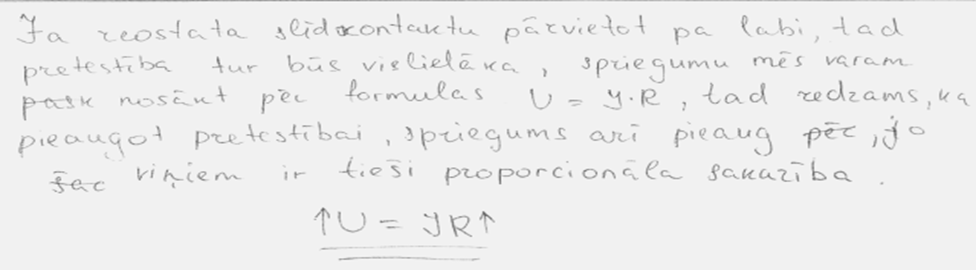 Ja reostata slīdkontaktu pārvietot pa labi, tad
pretestība tur būs vislielāka, spriegumu mēs varam
nosākt pēc formulas U = J·R, tad redzams, ka
pieaugot pretestībai, spriegums arī pieaug pēc, jo
šac viņiem ir tieši proporcionāla sakarība.
↑U = JR↑